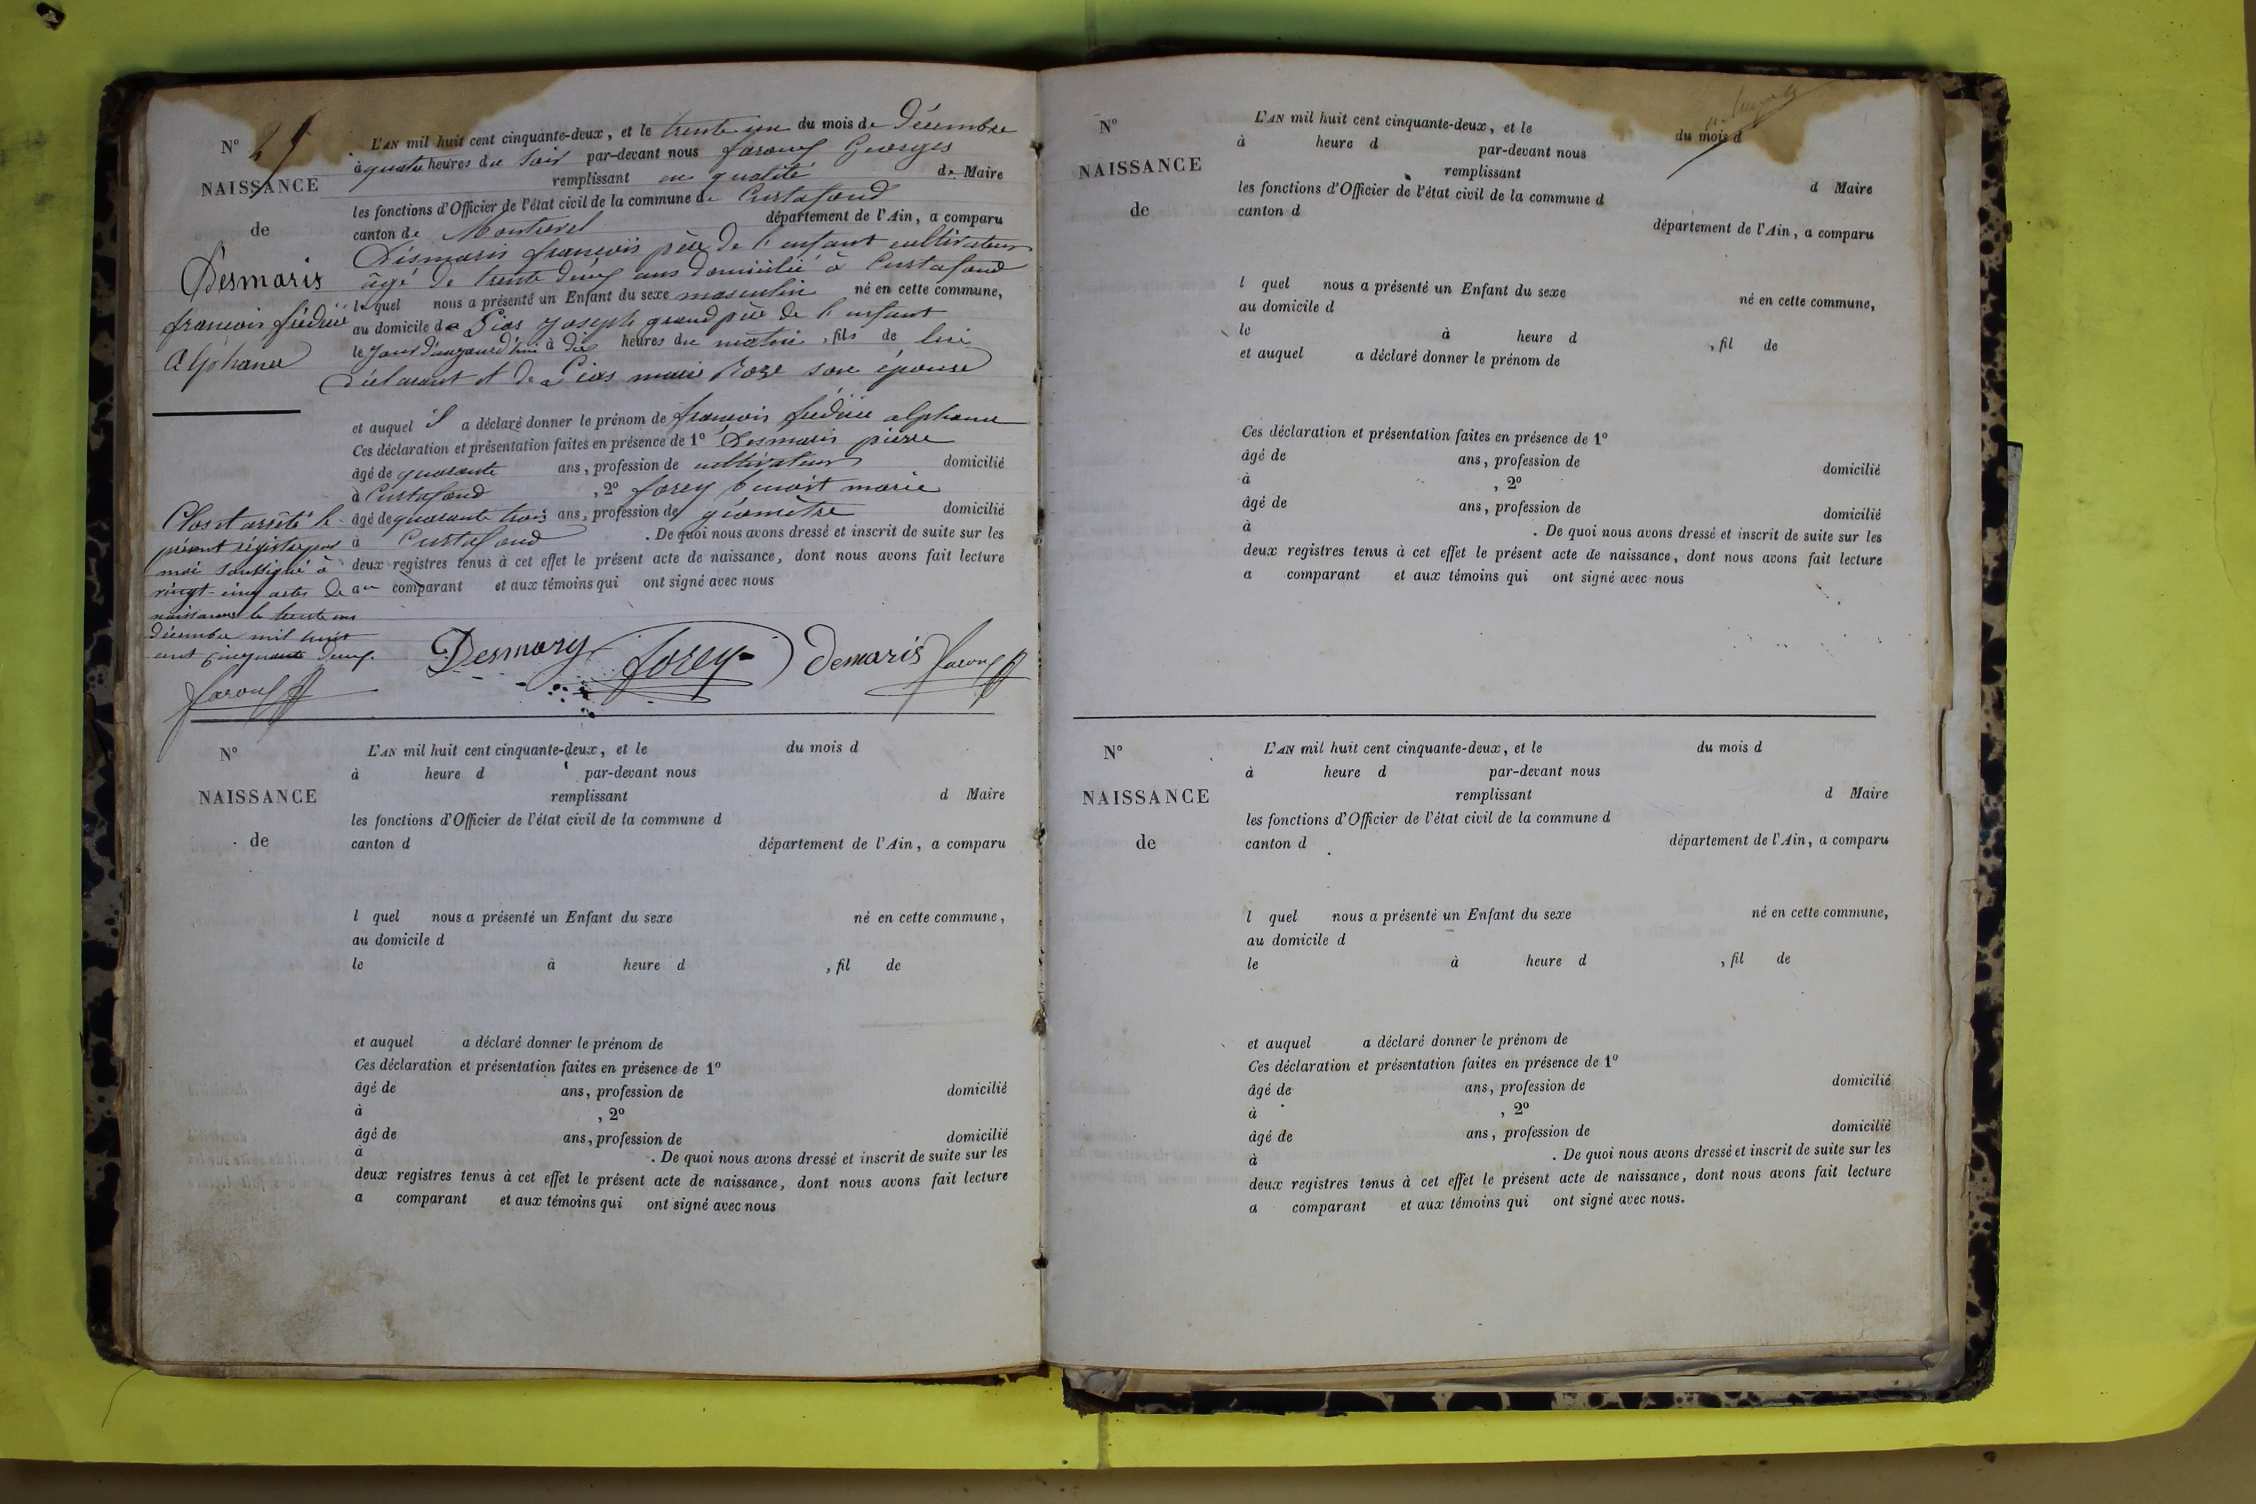 N° 25
NAISSANCE
de
Desmaris
françois frédéric
alphonse
L'AN mil huit cent cinquante-deux, et le trente un du mois de Décembre
à quatre heures du soir par-devant nous Georges
remplissant en qualité de Maire
les fonctions d'Officier de l'état civil de la commune de Curtafond
canton de Montrevel département de l'Ain, a comparu
Désmaris françois père de l'enfant cultivateur
âgé de trente deux ans domicilié à Curtafond
lequel nous a présenté un Enfant du sexe masculin né en cette commune,
au domicile de joseph grand père de l'enfant
le jour d'aujourd'hui à dix heures du matin, fils de lui
déclarant et de marie Roze son épouse
et auquel il a déclaré donner le prénom de françois frédéric alphonse
Ces déclaration et présentation faites en présence de 1° Desmaris pierre
âgé de quarante ans, profession de cultivateur domicilié
à Curtafond, 2° forey benoit marie
âgé de quarante trois ans, profession de géomètre domicilié
à Curtafond. De quoi nous avons dressé et inscrit de suite sur les
deux registres tenus à cet effet le présent acte de naissance, dont nous avons fait lecture
au comparant et aux témoins qui ont signé avec nous
Clos et arrêté le
présent régistre par
moi soussigné à
vingt-cinq actes de
naissance le trente un
décembre mil huit
cent cinquante deux.
Desmary forey demaris
N°
NAISSANCE
de
L'AN mil huit cent cinquante-deux, et le du mois d
à heure d par-devant nous
remplissant d Maire
les fonctions d'Officier de l'état civil de la commune d
canton d département de l'Ain, a comparu
l quel nous a présenté un Enfant du sexe né en cette commune,
au domicile d
le à heure d , fil de
et auquel a déclaré donner le prénom de
Ces déclaration et présentation faites en présence de 1°
âgé de ans, profession de domicilié
à , 2°
âgé de ans, profession de domicilié
à . De quoi nous avons dressé et inscrit de suite sur les
deux registres tenus à cet effet le présent acte de naissance, dont nous avons fait lecture
a comparant et aux témoins qui ont signé avec nous
N°
NAISSANCE
de
L'AN mil huit cent cinquante-deux, et le du mois d
à heure d par-devant nous
remplissant d Maire
les fonctions d'Officier de l'état civil de la commune d
canton d département de l'Ain, a comparu
l quel nous a présenté un Enfant du sexe né en cette commune,
au domicile d
le à heure d , fil de
et auquel a déclaré donner le prénom de
Ces déclaration et présentation faites en présence de 1°
âgé de ans, profession de domicilié
à , 2°
âgé de ans, profession de domicilié
à . De quoi nous avons dressé et inscrit de suite sur les
deux registres tenus à cet effet le présent acte de naissance, dont nous avons fait lecture
a comparant et aux témoins qui ont signé avec nous
N°
NAISSANCE
de
L'AN mil huit cent cinquante-deux, et le du mois d
à heure d par-devant nous
remplissant d Maire
les fonctions d'Officier de l'état civil de la commune d
canton d département de l'Ain, a comparu
l quel nous a présenté un Enfant du sexe né en cette commune,
au domicile d
le à heure d , fil de
et auquel a déclaré donner le prénom de
Ces déclaration et présentation faites en présence de 1°
âgé de ans, profession de domicilié
à , 2°
âgé de ans, profession de domicilié
à . De quoi nous avons dressé et inscrit de suite sur les
deux registres tenus à cet effet le présent acte de naissance, dont nous avons fait lecture
a comparant et aux témoins qui ont signé avec nous.